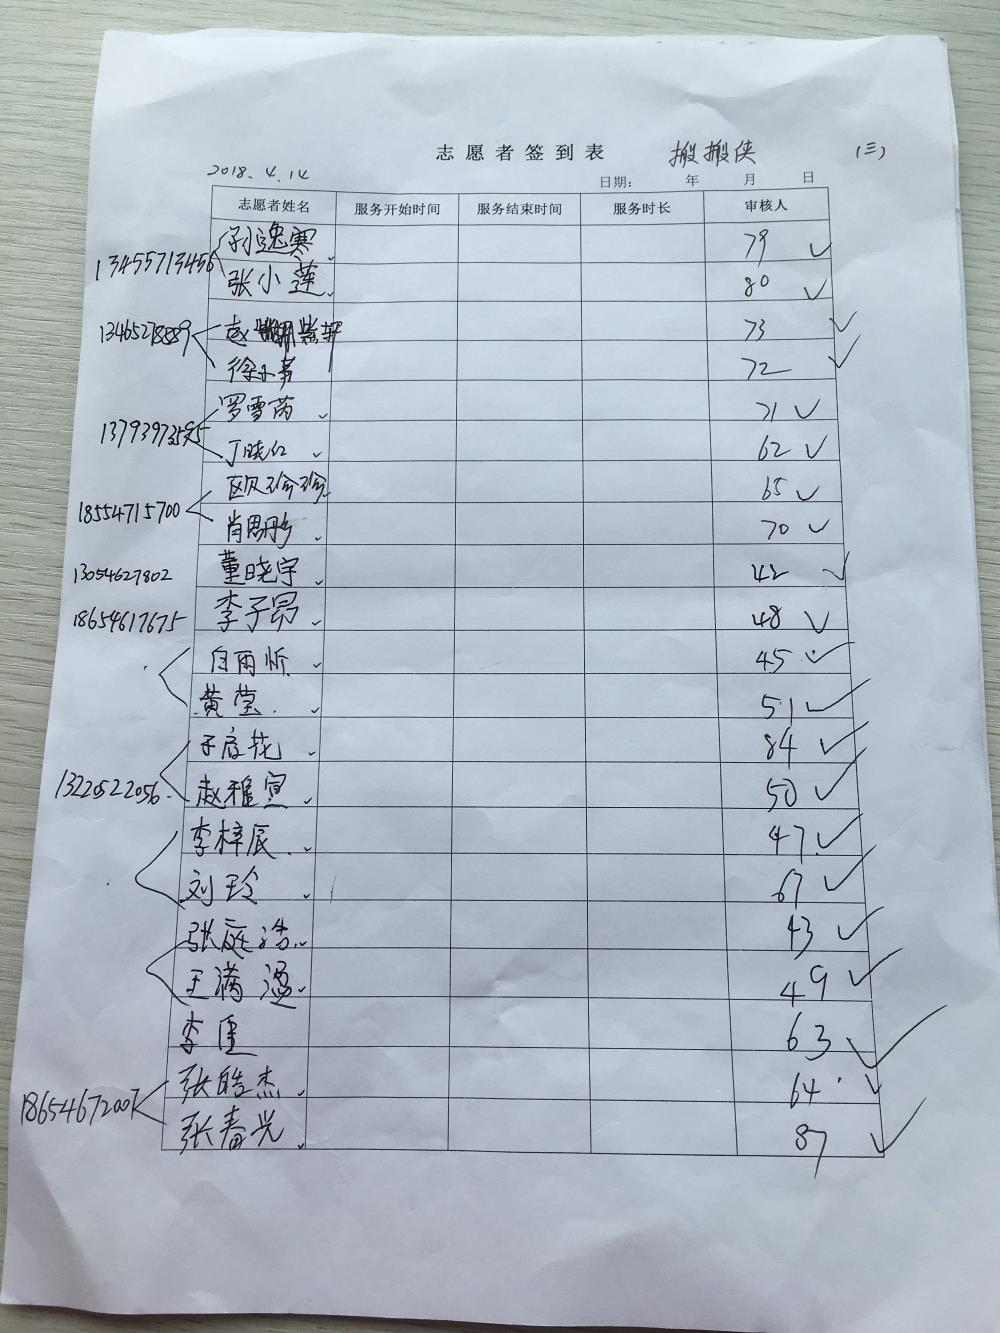 志愿者签到表 搬搬侠 (三)
2018.4.14 日期： 年 月 日
志愿者姓名 服务开始时间 服务结束时间 服务时长 审核人
孙逸寒 79 ✓
13455713456
张小莲 80 ✓
赵 紫轩 73 ✓
徐小 72 ✓
罗雪芮 71 ✓
丁晓红 62 ✓
欧珍珍 65 ✓
18554715700
肖思彤 70 ✓
13054627802 董晓宇 42 ✓
18654617675 李子昂 48 ✓
白雨忻 45 ✓
黄莹 51 ✓
花 84 ✓
13220522056
赵雅宣 50 ✓
李梓辰 47 ✓
刘玲 67 ✓
张庭浩 43 ✓
王满 49 ✓
李 63 ✓
张皓杰 64 ✓
张春兴 87 ✓